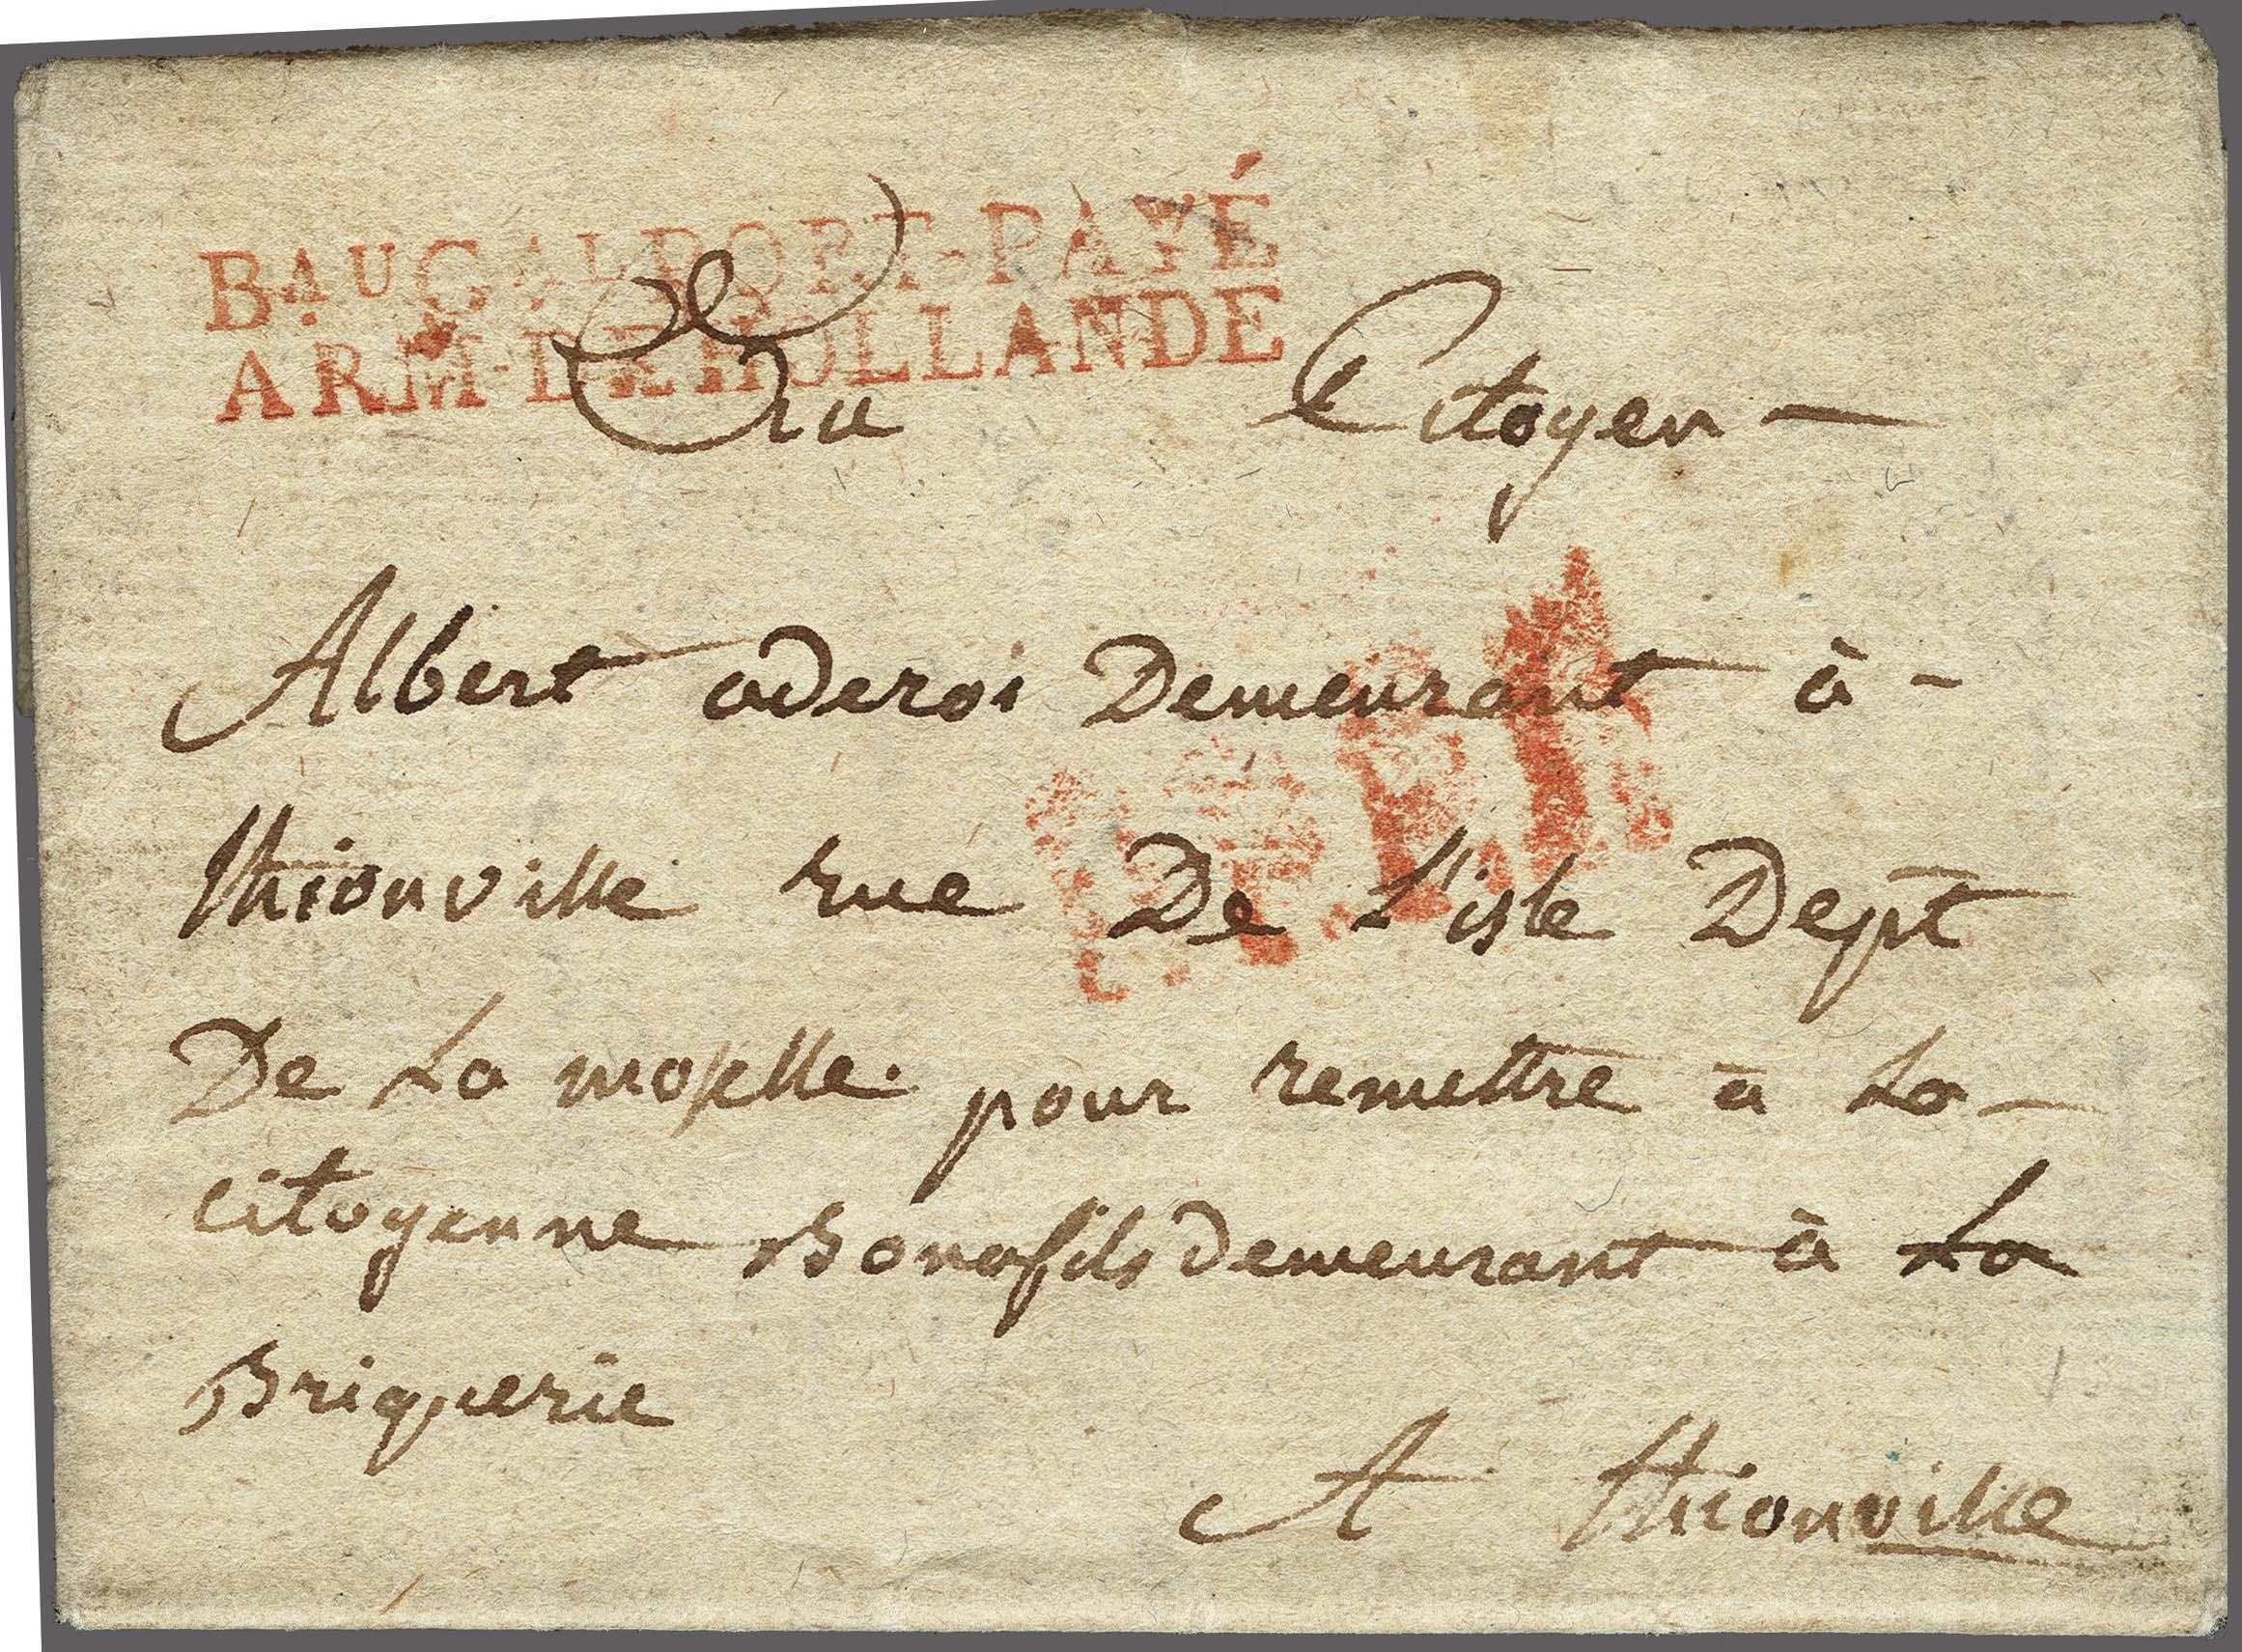 BAU GAL PORT-PAYÉ
ARM-DE HOLLANDE
Au Citoyen -
Albert aderoi Demeurant à -
thionville rue De L'isle Dept
De La moselle. pour remettre a La -
citoyenne Bonafils demeurant à La
Briquerie
A thionville